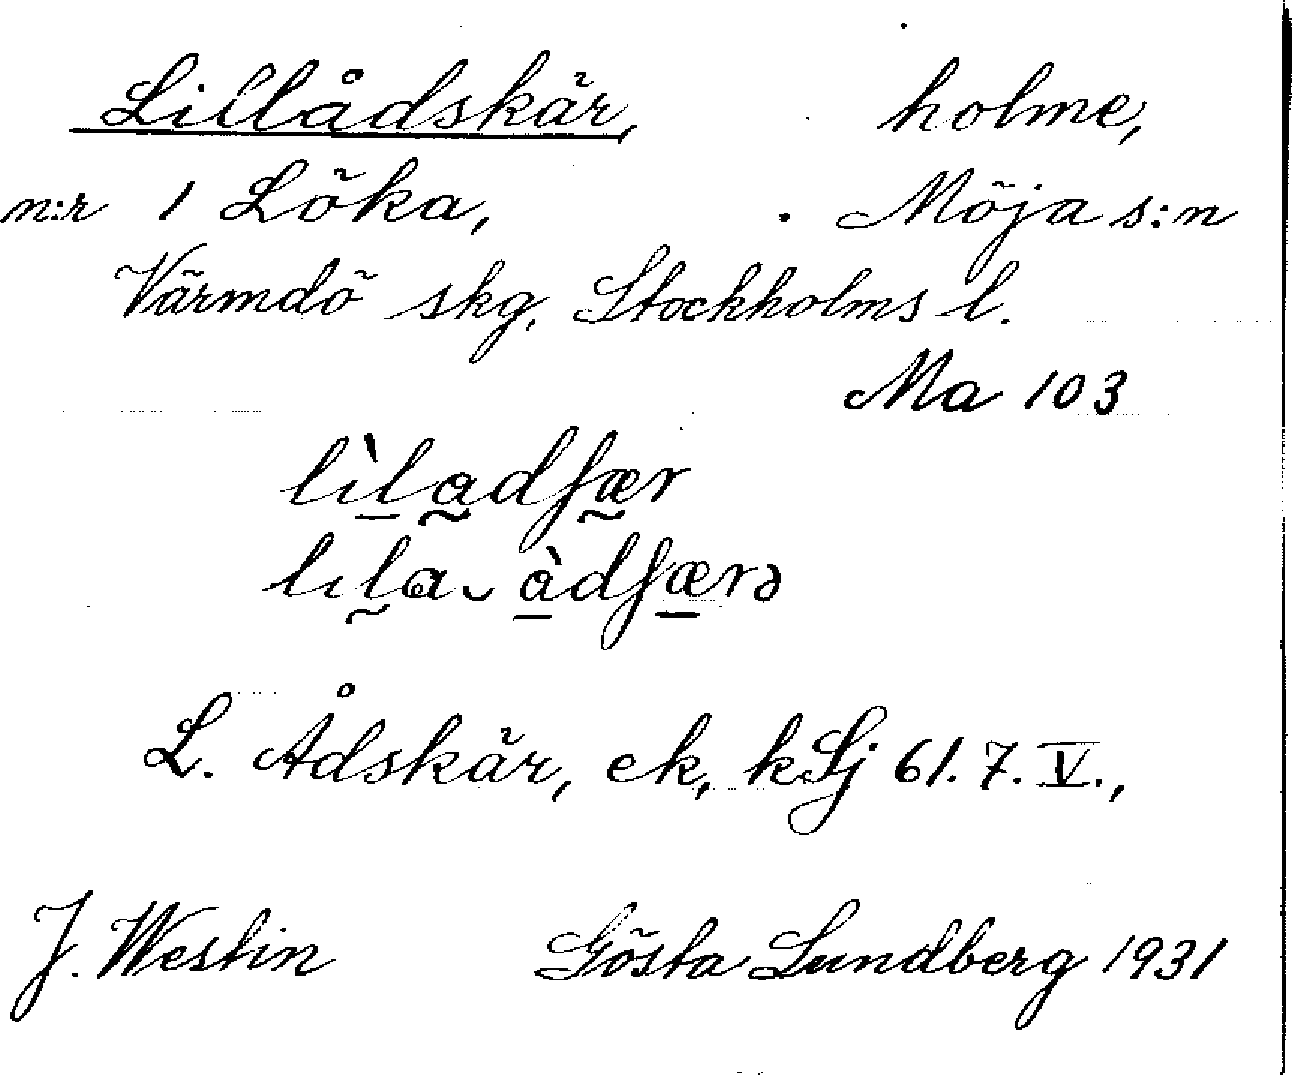 Lillådskär, holme,
n:r 1 Löka, Möja s:n
Värmdö skg, Stockholms l.
Ma 103
lìladʃær
lila àdʃærə
L. Ådskär, ek, kSj 61. 7. V.,
J. Westin Gösta Lundberg 1931